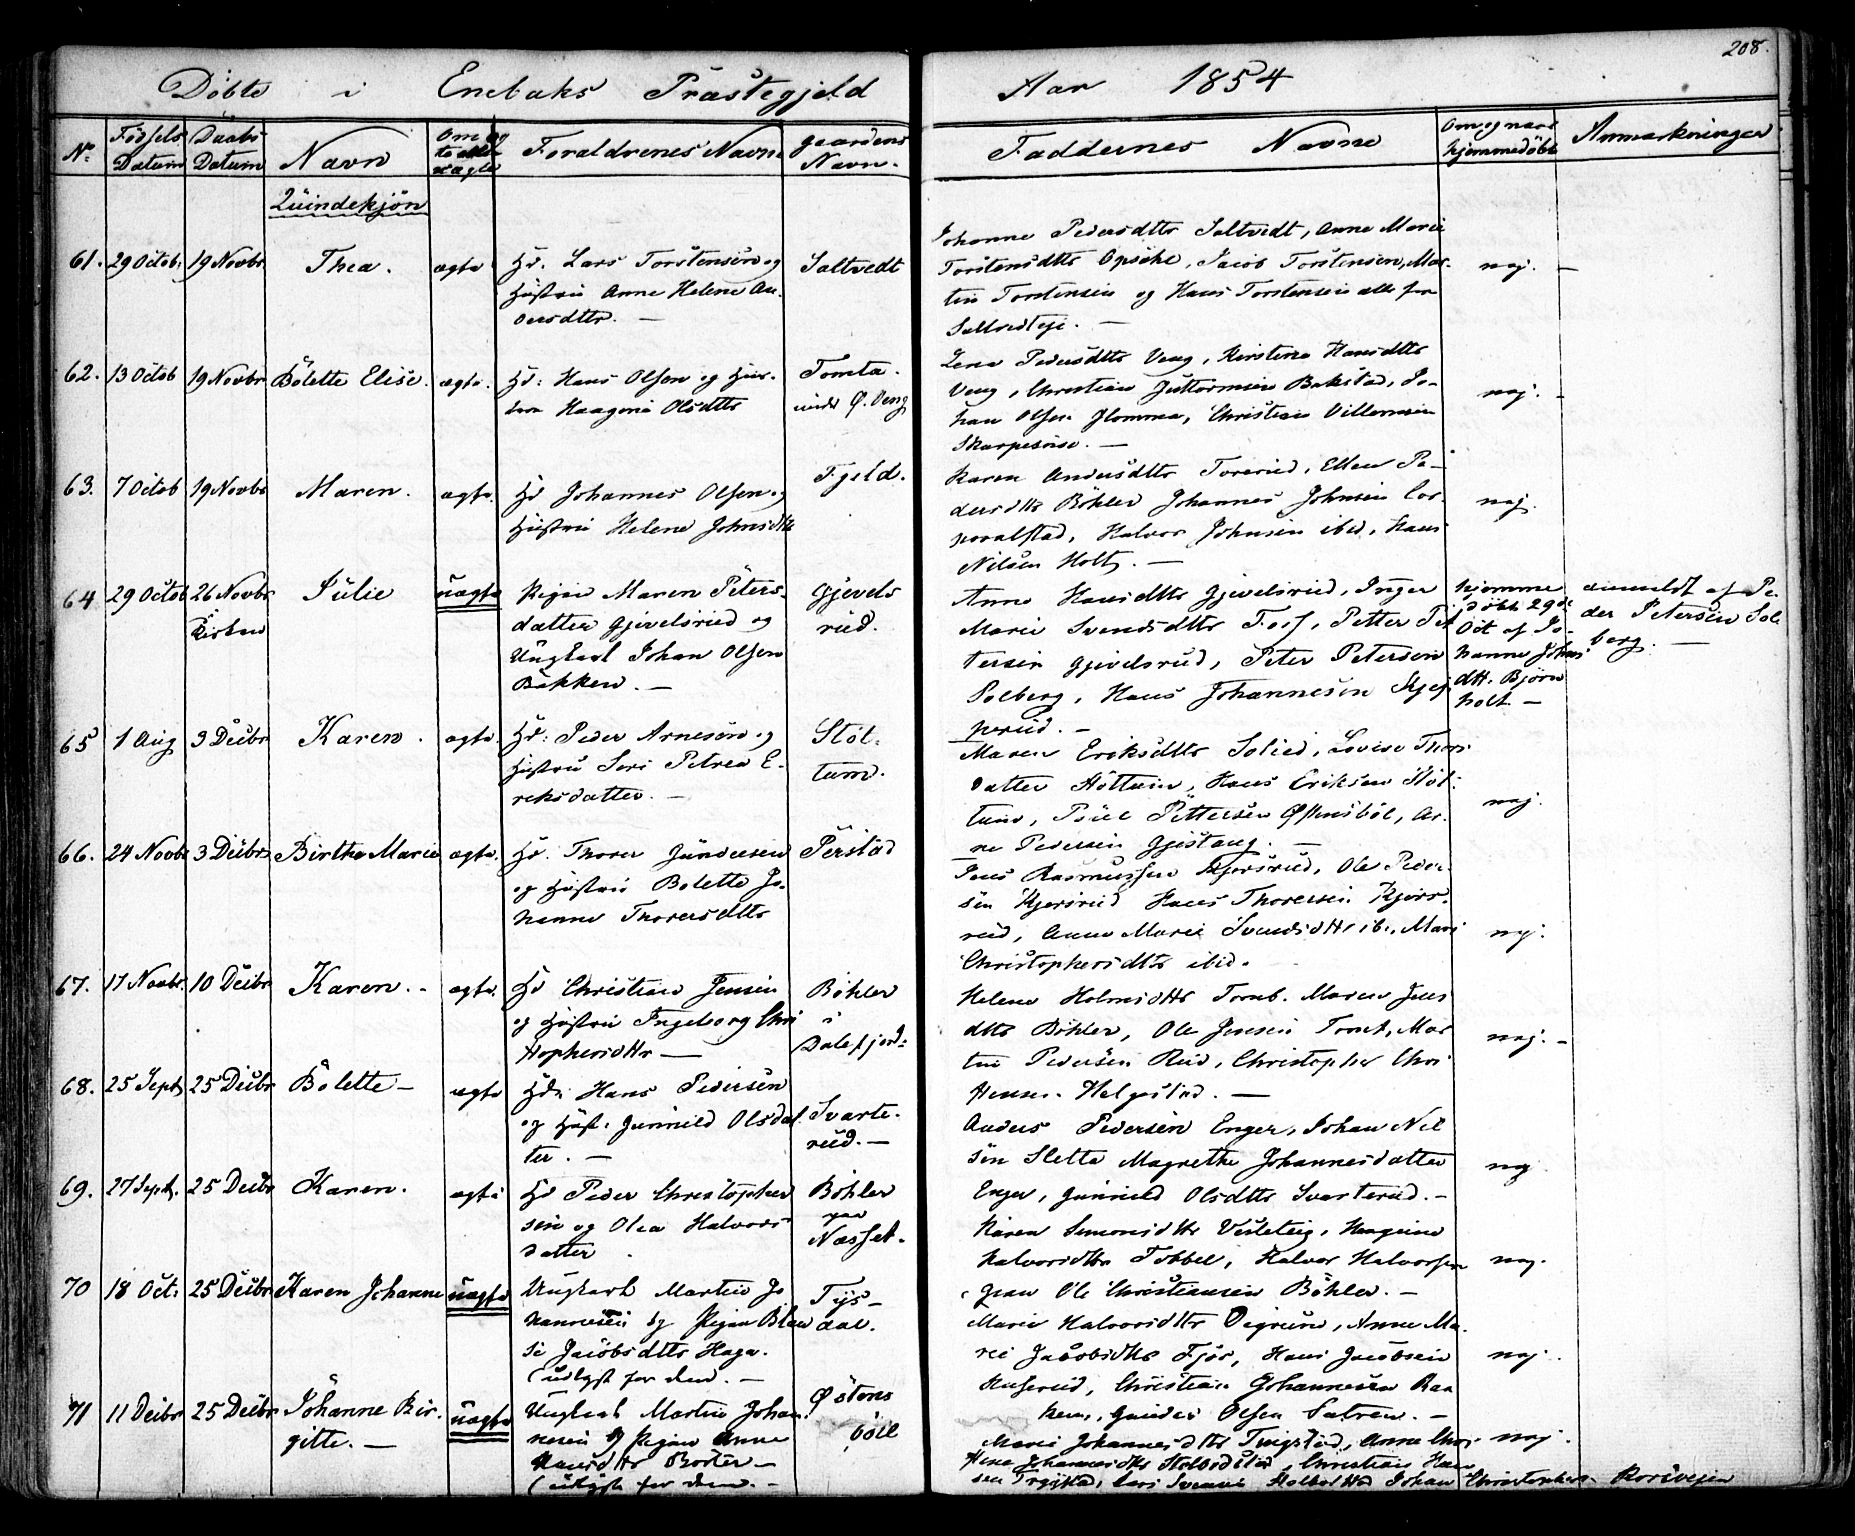 208.
Döbte i Enebaks Præstegjeld Aar 1854
No. Födsels Datum Daabs Datum Navn Om ægte eller uægte Forældrenes Navne Gaardens Navn. Faddernes Navne Om og naar hjemmedöbt Anmærkninger
Quindekjön
61. 29 Octob. 19 Novbr Thea. ægte Hd. Lars Torstensen og Saltvedt
Hustru Anne Helene An-
dersdttr. —
Johanne Pedersdttr Saltvedt, Anne Marie
Torstensdttr Opsahe, Jacob Torstensen, Mar-
tin Torstensen og Hans Torstensen alle fra
Saltvedteje. —
nej. —
62. 13 Octob 19 Novbr Bolette Elise. ægte. Hd: Hans Olsen og Hus- Tomta.
tru Haagine Olsdttr under Ø. Veng
Lena Pedersdttr Veng, Kirstene Hansdttr
Veng, Christian Guttormsen Bakstad, Jo-
han Olsen Flomma, Christian Villumsen
Skarpesnoe. —
nej. -
63. 7 Octob 19 Novbr Maren. ægte. Hd Johannes Olsen og Fjeld.
Hustru Helene Johnsdttr
Karen Andersdttr Torerud, Ellen Pe-
dersdttr Böhler Johannes Johnsen Cor-
poralstad, Halvor Johnsen ibid, Hans
Nilsen Holt. —
nej.
64 29 Octob 26 Novbr Julie uægte Pigen Maren Peters- Gjevels
Kirken datter Gjevelsrud og rud.
Ungkarl Johan Olsen
Bakken. —
Anne Hansdttr Gjevelsrud, Inger
Marie Svendsdttr Foss, Petter Pet
tersen Gjevelsrud, Peter Petersen
Solberg, Hans Johannesen Skjep
perud. -
hjemme
döbt 29de
Oct af Jo-
hanne Johns
dtt. Björn
holt. —
anmeldt af Pe-
der Petersen Sol
berg. —
65 1 Aug 3 Decbr Karen. ægte. Hd: Peder Arnesen og Stöt-
Hustru Seri Petrea E- tum.
riksdatter. —
Maren Eriksdttr Solied, Lovise Thors
datter Stöttum, Hans Eriksen Stöt-
tum, Poul Pettersen Østensböl, Ar-
ne Pedersen Gjestang. —
nej.
66. 24 Novbr 3 Decbr Birthe Marie ægte. Hd. Thorer Gundersen Perstad
og Hustru Bolette Jo-
hanne Thorersdttr
Jens Rasmussen Kjersrud, Ole Peder-
sen Kjersrud Hans Thorersen Kjers-
rud, Anne Marie Svendsdttr ib., Mari
Christophersdttr ibid.
nej.
67. 17 Novbr. 10 Decbr Karen. - ægte. Hd Christian Jensen Böhler
og Hustru Ingeborg Chri i
stophersdttr — Dalefjerd:
Helene Holmsdttr Tomt. Maren Jens
dttr Böhler, Ole Jensen Tomt, Mar
tin Pedersen Rud, Christopher Chri
stensen Helgestad. —
nej. -
68. 25 Sept, 25 Decbr Bolette — ægte Hd: Hans Pedersen
og Hust: Gunnild Olsdat Svarte-
ter. — rud. —
Anders Pedersen Enger, Johan Nil
sen Sletta Magrethe Johannesdatter
Enger, Gunnild Olsdttr Svarterud. -
nej
69. 27 Sept. 25 Decbr Karen. ægte Hd Peder Christopher Böhler
sen og Olea Halvors paa
datter Næsset.
Karen Simonsdttr Vesleteig, Haagine
Halvorsdttr Tobbel, Halvor Halvorsen
Gran Ole Christiansen Böhler. -
nej.
70 18 Oct: 25 Decbr Karen Johanne uægte Ungkarl Martin Jo Tys-
hannesen og Pigen Elen dal.
Jacobsdttr Haga.
(udlagt for dem. —
Marie Halvorsdttr Degrum, Anne Ma-
rie Jacobsdttr Fjös, Hans Jacobsen
Huserud, Christian Johannesen Bak
ken, Gunder Olsen Sætren. -
nej.
71 11 Decbr 25 Decbr Johanne Bir- uægte Ungkarl Martin Johan Østens
gitte. — nesen og Pigen Anne böll
Hansdttr Börter —
(udlagt for dem. -
Maria Johannesdttr Tangstad, Anne Chri-
stine Johannesdttr Stolbodstad, Christian Han
Johan Christophers. Korsvejen
nej.